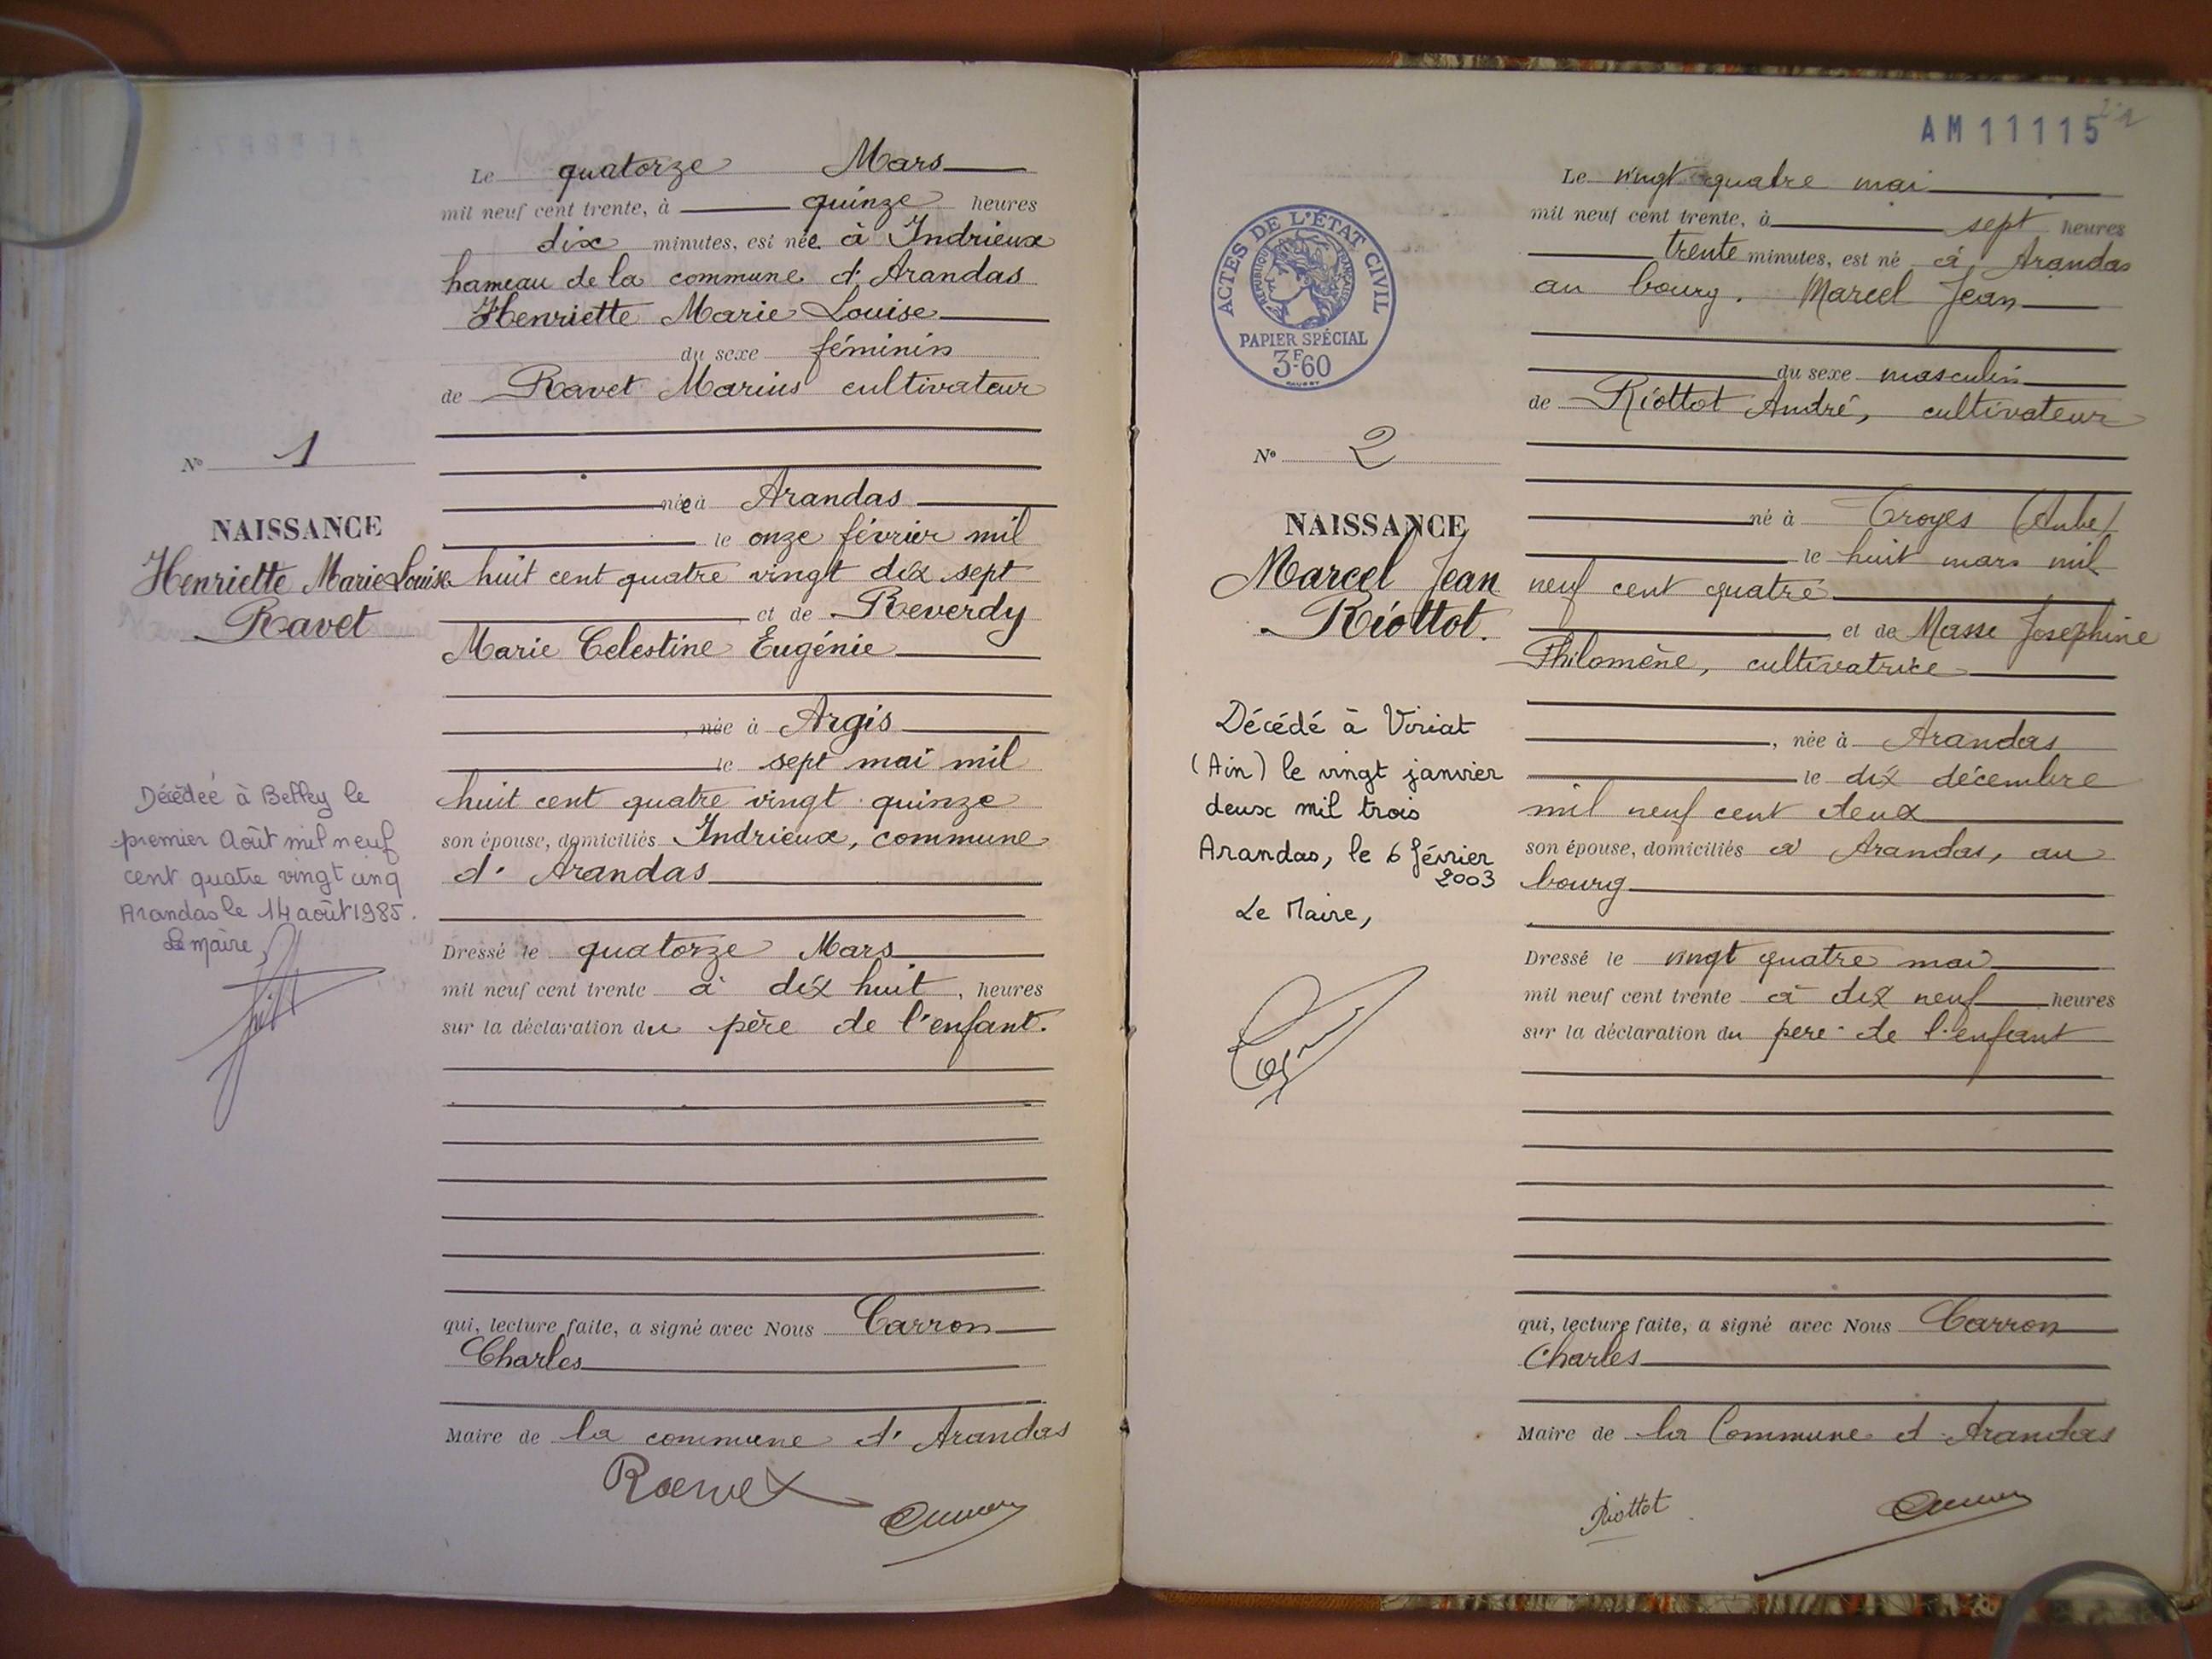 Le quatorze Mars
mil neuf cent trente, à quinze heures
dix minutes, est née à Indrieux
hameau de la commune d'Arandas
Henriette Marie Louise
du sexe féminin
de Ravet Marius cultivateur
N° 1
NAISSANCE
Henriette Marie Louise
Ravet
née à Arandas
le onze février mil
huit cent quatre vingt dix sept
et de Reverdy
Marie Celestine Eugénie
, née à Argis
le sept mai mil
huit cent quatre vingt quinze
son épouse, domiciliés Indrieux, commune
d'Arandas
Décédeé à Belley le
premier Août mil neuf
cent quatre vingt cinq
Arandas le 14 août 1985.
Le maire,
Dressé le quatorze Mars
mil neuf cent trente à dix huit, heures
sur la déclaration du père de l'enfant.
qui, lecture faite, a signé avec Nous Carron
Charles
Maire de la commune d'Arandas
AM 11115
ACTES DE L'ÉTAT CIVIL
RÉPUBLIQUE FRANÇAISE
PAPIER SPÉCIAL
3F.60
Le vingt quatre mai
mil neuf cent trente, à sept heures
trente minutes, est né à Arandas
au bourg. Marcel Jean
du sexe masculin
de Riottot André, cultivateur
N° 2
NAISSANCE
Marcel Jean
Riottot.
né à Troyes (Aube)
le huit mars mil
neuf cent quatre
, et de Masse Josephine
Philomène, cultivatrice
, née à Arandas
le dix décembre
mil neuf cent deux
son épouse, domiciliés à Arandas, au
bourg
Décédé à Viriat
(Ain) le vingt janvier
deux mil trois
Arandas, le 6 février
2003
Le Maire,
Dressé le vingt quatre mai
mil neuf cent trente à dix neuf heures
sur la déclaration du père de l'enfant
qui, lecture faite, a signé avec Nous Carron
Charles
Maire de la Commune d'Arandas
Riottot